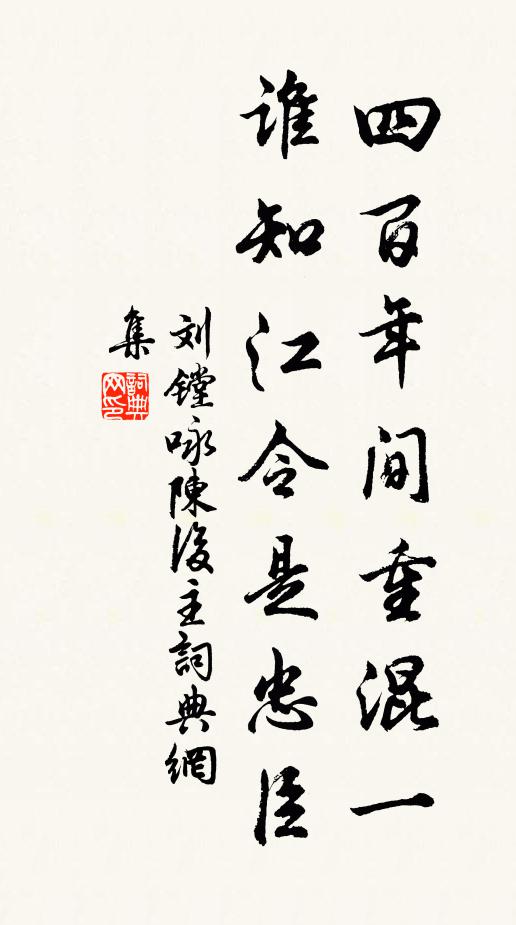 四百年间重混一
谁知江令是忠臣
刘镗咏陳後主詞典網
集
詞典网印